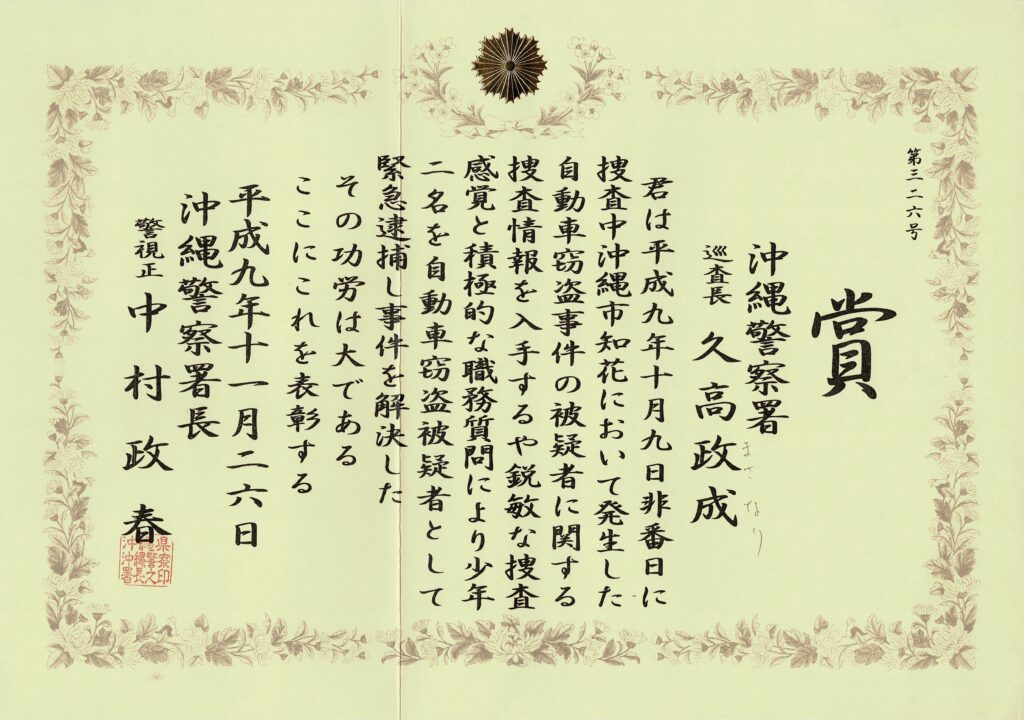 第三二六号
賞
沖縄警察署
巡査長 久高政成
まさなり
君は平成九年十月九日非番日に
捜査中沖縄市知花において発生した
自動車窃盗事件の被疑者に関する
捜査情報を入手するや鋭敏な捜査
感覚と積極的な職務質問により少年
二名を自動車窃盗被疑者として
緊急逮捕し事件を解決した
その功労は大である
ここにこれを表彰する
平成九年十一月二六日
沖縄警察署長
警視正 中村政春